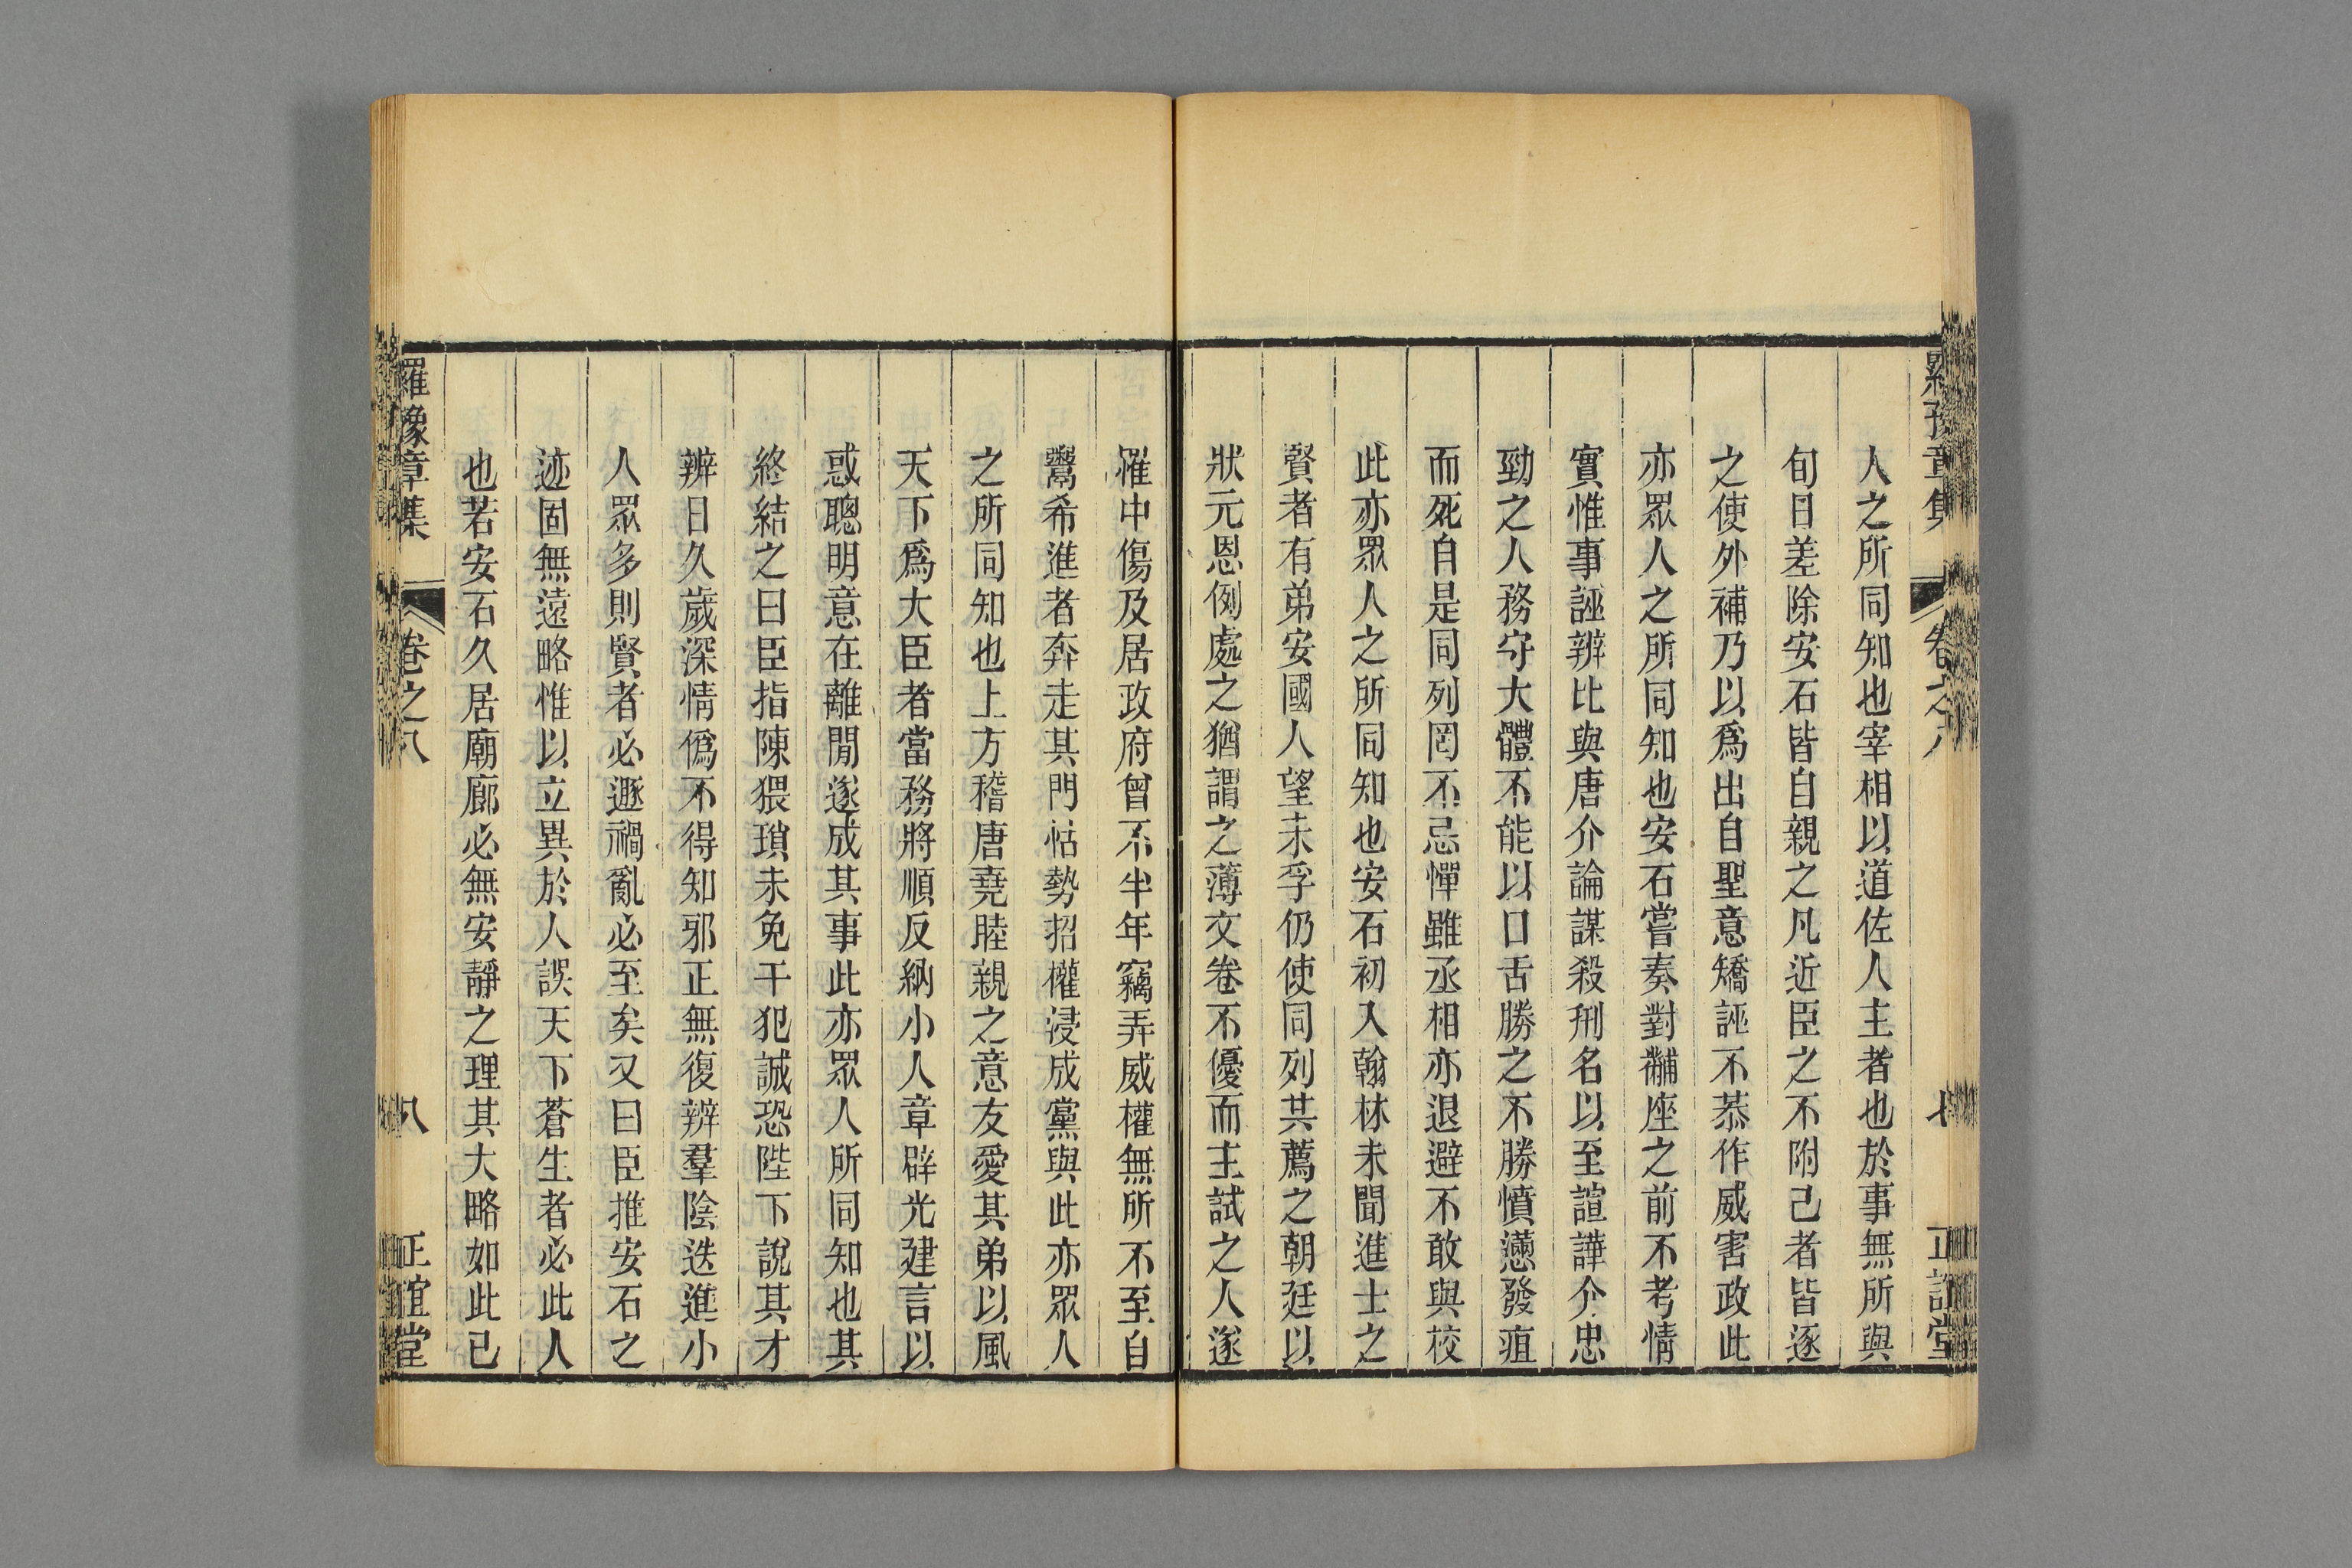 羅豫章集 卷之八 七 正誼堂
人之所同知也宰相以道佐人主者也於事無所與
旬日差除安石皆自親之凡近臣之不附己者皆逐
之使外補乃以爲出自聖意矯誣不恭作威害政此
亦眾人之所同知也安石嘗奏對黼座之前不考情
實惟事誣辨比與唐介論謀殺刑名以至諠譁介忠
勁之人務守大體不能以口舌勝之不勝憤懣發疽
而死自是同列罔不忌憚雖丞相亦退避不敢與校
此亦眾人之所同知也安石初入翰林未聞進士之
賢者有弟安國人望未孚仍使同列其薦之朝廷以
狀元恩例處之猶謂之薄文卷不優而主試之人遂
罹中傷及居政府曾不半年竊弄威權無所不至自
鬻希進者奔走其門怙勢招權浸成黨與此亦眾人
之所同知也上方稽唐堯睦親之意友愛其弟以風
天下爲大臣者當務將順反納小人章辟光建言以
惑聰明意在離間遂成其事此亦眾人所同知也其
終結之曰臣指陳猥瑣未免干犯誠恐陛下說其才
辨日久歲深情僞不得知邪正無復辨羣陰迭進小
人眾多則賢者必遯禍亂必至矣又曰臣推安石之
迹固無遠略惟以立異於人誤天下蒼生者必此人
也若安石久居廟廊必無安靜之理其大略如此已
羅豫章集 卷之八 八 正誼堂